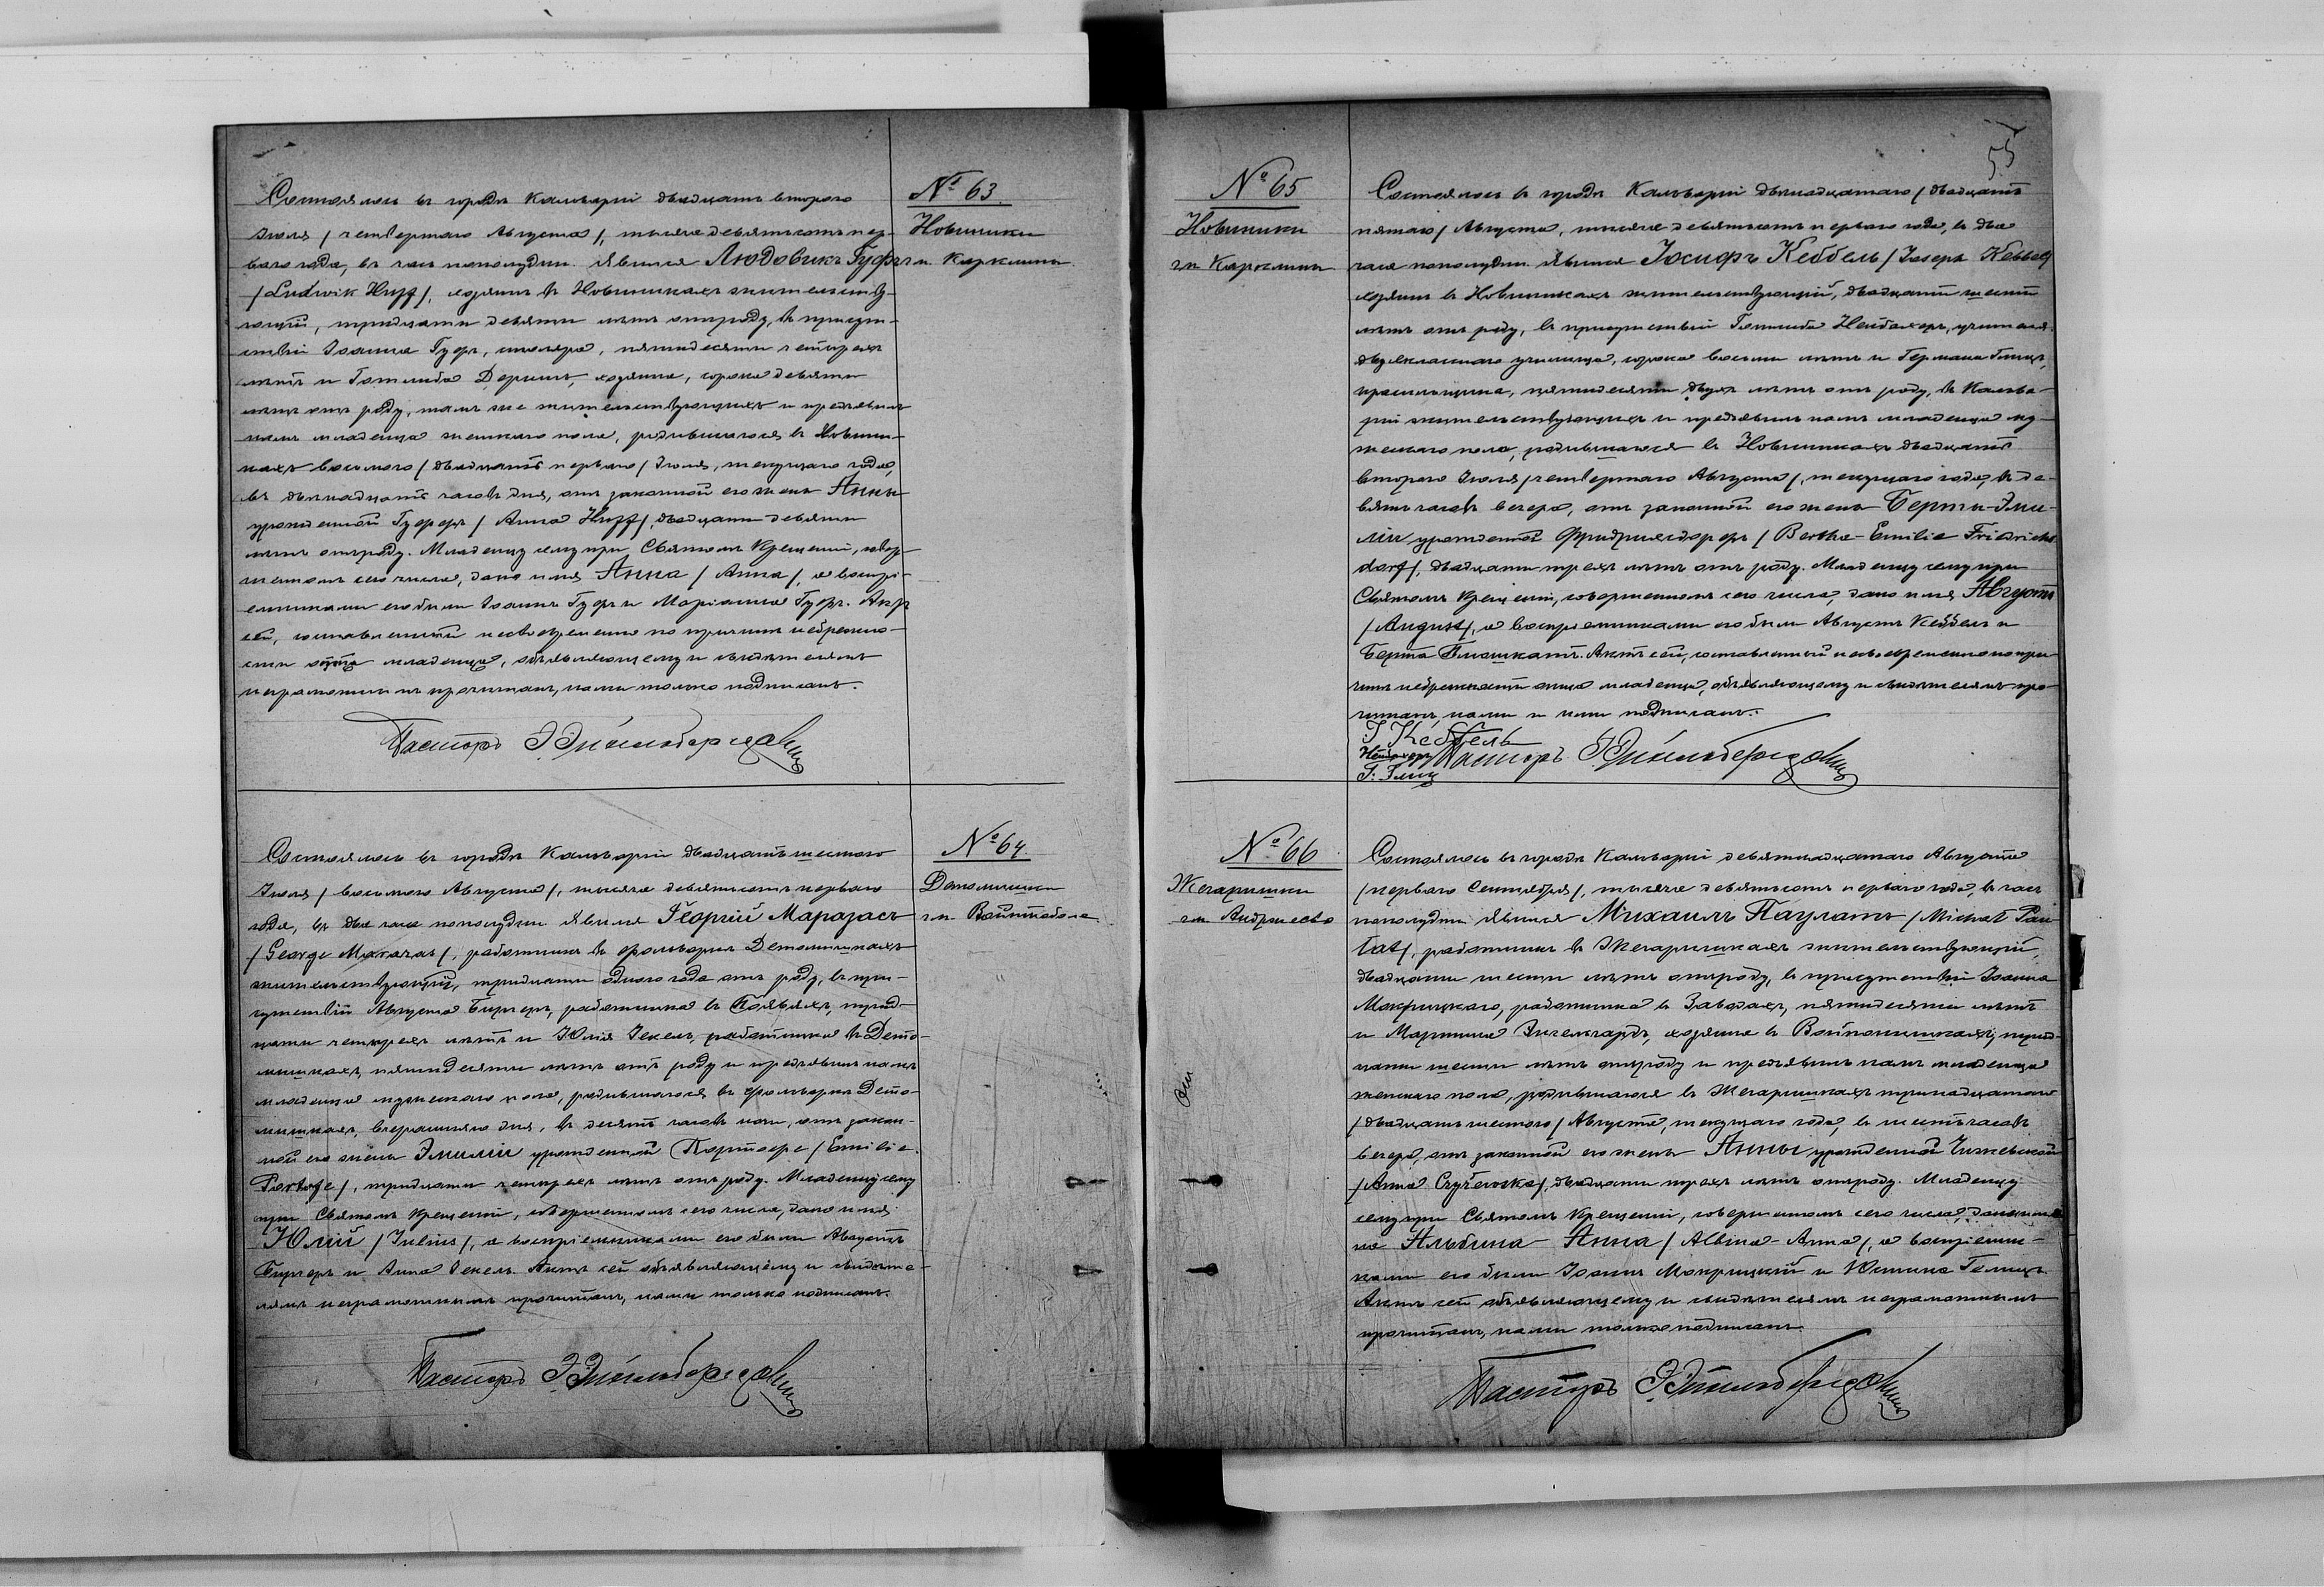 Состоялось въ городѣ Кальваріи двадцать второго
Іюля /четвертаго Августа/, тысяча девятьсотъ пер-
ваго года, въ часъ пополудни. Явился Людовикъ Гуфъ
/Ludwik Huff/, хозяинъ въ Новиникахъ жительству-
ющій, тридцати девяти лѣтъ отъ роду, въ присут-
ствіи Іоанна Гуфъ, столяра, пятидесяти четырехъ
лѣтъ и Готлиба Дерингъ, хозяина, сорока девяти
лѣтъ отъ роду, тамъ же жительствующихъ и предъявилъ
намъ младенца женскаго пола, родившагося въ Новини-
кахъ восьмого /двадцать перваго/ Іюля, текущаго года,
въ двѣнадцать часовъ дня, отъ законной его жены Анны
урожденной Гуфъ /Anna Huff/, двадцати девяти
лѣтъ отъ роду. Младенцу сему при Святомъ Крещеніи, совер-
шенномъ сего числа, дано имя Анна /Anna/, а воспрі-
емниками его были Іоаннъ Гуфъ и Маріанна Гуфъ. Актъ
сей, составленный несвоевременно по причинѣ небрежно-
сти отца младенца, объявляющему и свидѣтелямъ
неграмотнымъ прочитанъ, нами только подписанъ.
Пасторъ
№ 63.
Новиники
гм. Кирклины
Состоялось въ городѣ Кальваріи двадцать шестого
Іюля /восьмого Августа/, тысяча девятьсотъ перваго
года, въ два часа пополудни. Явился Георгій Маразасъ
/George Marazas/, работникъ въ фольваркѣ Детомишкахъ
жительствующій, тридцати одного года отъ роду, въ при-
сутствіи Августа Биргеръ, работника въ трид-
цати четырехъ лѣтъ и Юлія Гекель, работника въ Дето-
мишкахъ, пятидесяти лѣтъ отъ роду и предъявилъ намъ
младенца мужескаго пола, родившагося въ фольваркѣ Дето-
мишкахъ, вчерашняго дня, въ десять часовъ ночи, отъ закон-
ной его жены Эмиліи урожденной Портофе /Emilie
Portofe/, тридцати четырехъ лѣтъ отъ роду. Младенцу сему
при Святомъ Крещеніи, совершенномъ сего числа, дано имя
Юлій /Julius/, а воспріемниками его были Августъ
Биргеръ и Анна Гекель. Актъ сей объявляющему и свидѣте-
лямъ неграмотнымъ прочитанъ, нами только подписанъ.
Пасторъ
№ 64.
Детомишки
гм.
55
№ 65
Новиники
гм Кирклины
Состоялось въ городѣ Кальваріи двѣнадцатаго /двадцать
пятаго/ Августа, тысяча девятьсотъ перваго года, въ два
часа пополудни. Явился Іосифъ Кеббель /Joseph Kebbel/
хозяинъ въ Новиникахъ жительствующій, двадцати шести
лѣтъ отъ роду, въ присутствіи Готлиба Нейбахеръ, учителя
двухкласснаго училища, сорока восьми лѣтъ и Германа Глицъ,
красильщика, пятидесяти двухъ лѣтъ отъ роду, въ Кальва-
ріи жительствующихъ и предъявилъ намъ младенца му-
жескаго пола, родившагося въ Новиникахъ двадцать
второго Іюля /четвертаго Августа/, текущаго года, въ де-
вять часовъ вечера, отъ законной его жены Берты-Эми-
ліи урожденной Фридрихсдорфъ /Bertha-Emilie Friedrichs
dorf/, двадцати трехъ лѣтъ отъ роду. Младенцу сему при
Святомъ Крещеніи, совершенномъ сего числа, дано имя Августъ
/August/, а воспріемниками его были Августъ Кеббель и
Берта Плошкатъ. Актъ сей, составленный несвоевременно по при-
чинѣ небрежности отца младенца, объявляющему и свидѣтелямъ про-
читанъ, нами и ими подписанъ.
І Кеббель
Нейбахеръ
Г. Глиц
Пасторъ
№ 66
Жегаришки
гм.
Состоялось въ городѣ Кальваріи девятнадцатаго Августа
/перваго Сентября/, тысяча девятьсотъ перваго года, въ часъ
пополудни. Явился Михаилъ Паулатъ /Michał Pau
łat/, работникъ въ Жегаришкахъ жительствующій,
двадцати шести лѣтъ отъ роду, въ присутствіи Іоанна
Мокрицкаго, работника въ Заводахъ, пятидесяти лѣтъ
и Мартина Энгельгардъ, хозяина въ трид-
цати шести лѣтъ отъ роду и предъявилъ намъ младенца
женскаго пола, родившагося въ Жегаришкахъ тринадцатаго
/двадцать шестого/ Августа, текущаго года, въ шесть часовъ
вечера, отъ законной его жены Анны урожденной Чижевской
/Anna Czyżewska/, двадцати трехъ лѣтъ отъ роду. Младенцу
сему при Святомъ Крещеніи, совершенномъ сего числа, даны име-
на Альбина-Анна /Albina-Anna/, а воспріемни-
ками его были Іоаннъ Мокрицкій и Юстина
Актъ сей объявляющему и свидѣтелямъ неграмотнымъ
прочитанъ, нами только подписанъ.
Пасторъ